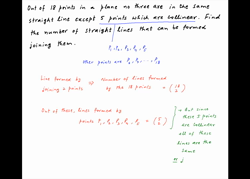 Out of 18 points in a plane no three are in the same
straight line except 5 points which are collinear. Find
the number of straight lines that can be formed
joining them.
P₁, P₂, P₃, P₄, P₅
Other points are P₆, ..., P₁₈
Line formed by
joining 2 points
Number of lines formed
by the 18 points = (18 2)
Out of these, lines formed by
points P₁, P₂, P₃, P₄, P₅ = (5 2)
But since
these 5 points
are collinear
all of these
lines are the
same